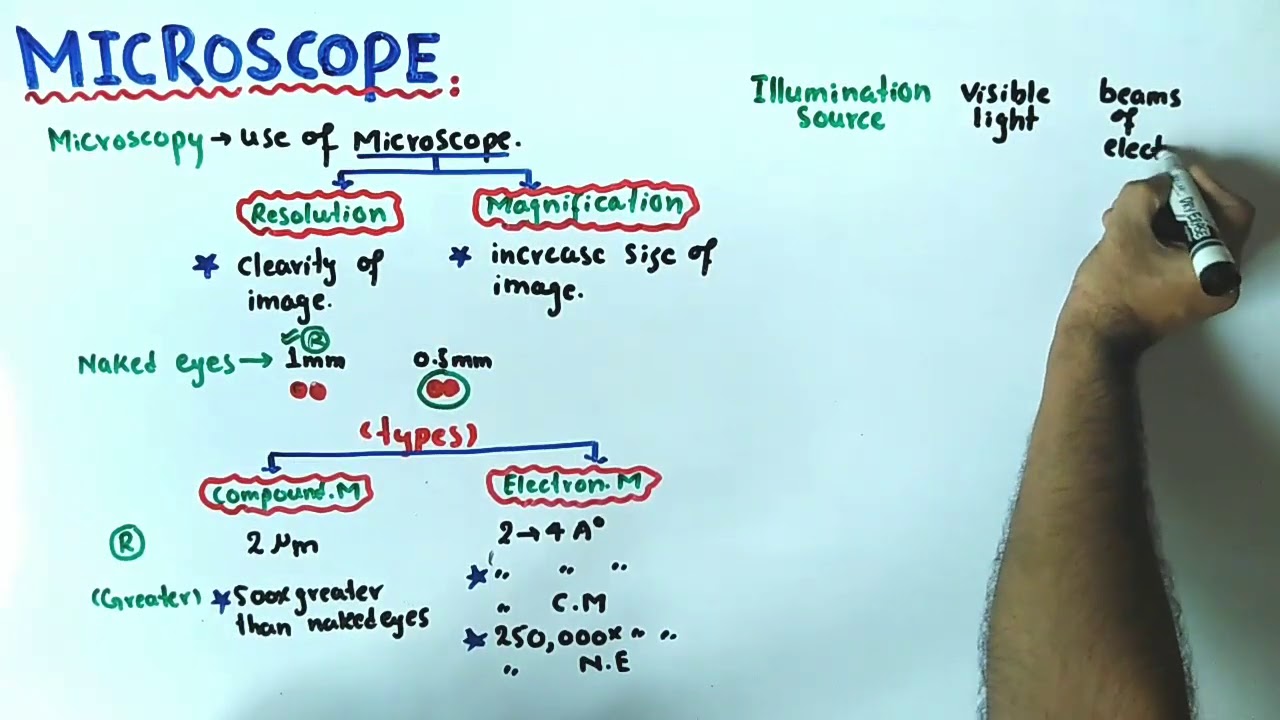 MICROSCOPE:
Microscopy → use of Microscope.
Resolution
Magnification
★ clearity of
image.
★ increase size of
image.
Naked eyes → 1mm 0.5mm
R
(types)
Compound.M
Electron.M
R 2 μm
2→4 A°
(Greater) ★ 500x greater
than naked eyes
★ " " "
" C.M
★ 250,000x " "
" N.E
Illumination
Source
Visible
light
beams
of
elect
DRY ERASE